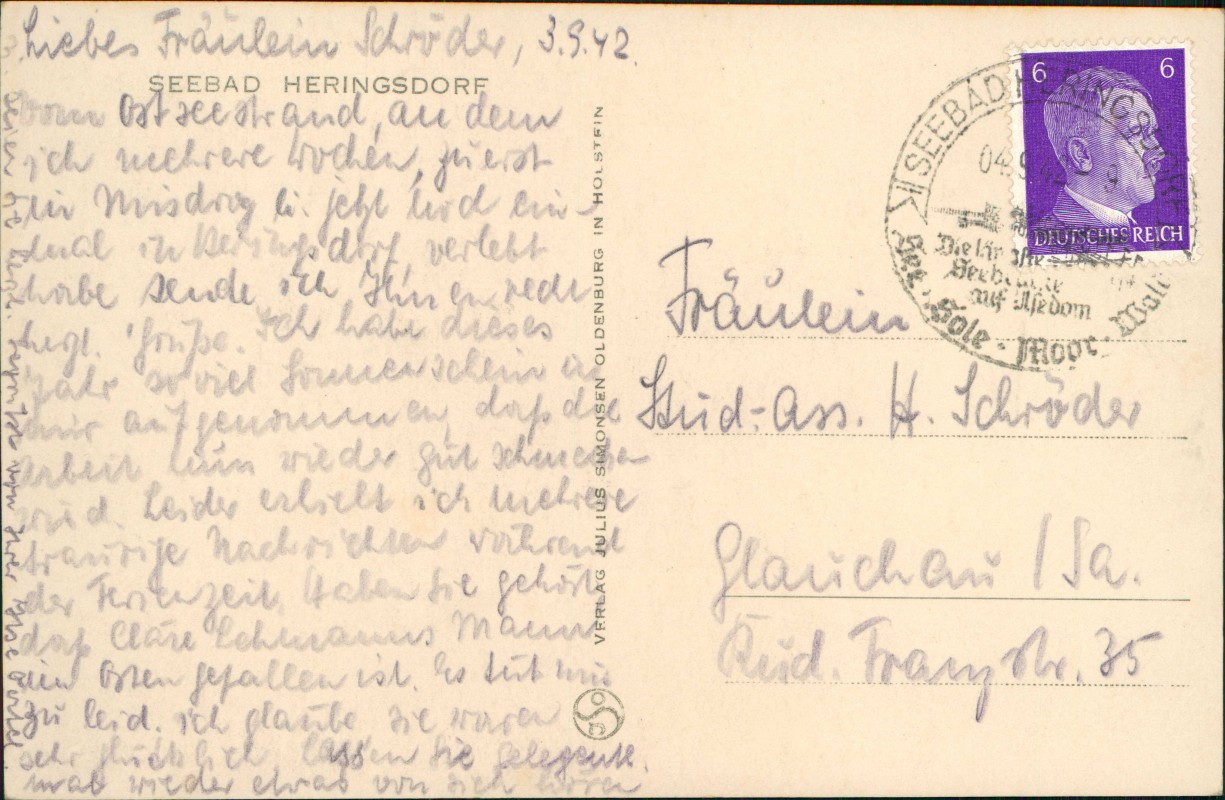 Liebes Fräulein Schröder, 3.9.42.
SEEBAD HERINGSDORF
Vom Ostseestrand, an dem
ich mehrere Wochen, zuerst
in Misdroy u. jetzt noch ein-
mal in Heringsdorf, verlebt
habe sende ich Ihnen recht
herzl. Grüße. Ich habe dieses
Jahr so viel Sonnenschein in
mir aufgenommen, daß die
Arbeit nun wieder gut schmecken
wird. Leider erhielt ich mehrere
traurige Nachrichten während
der Ferienzeit. Haben Sie gehört
daß Cläre Lehmanns Mann
im Osten gefallen ist. Es tut mir
zu leid. ich glaube sie waren
sehr glücklich. Lassen Sie gelegentl.
mal wieder etwas von sich hören
von Ihrer
VERLAG JULIUS SIMONSEN OLDENBURG IN HOLSTEIN
6 6
DEUTSCHES REICH
SEEBAD HERINGSDORF
04.9.42 9
Seebäder
auf Usedom
See · Sole · Moor · Wald
Fräulein
Stud.-Ass. H. Schröder
Glauchau / Sa.
Rud. Franzstr. 35